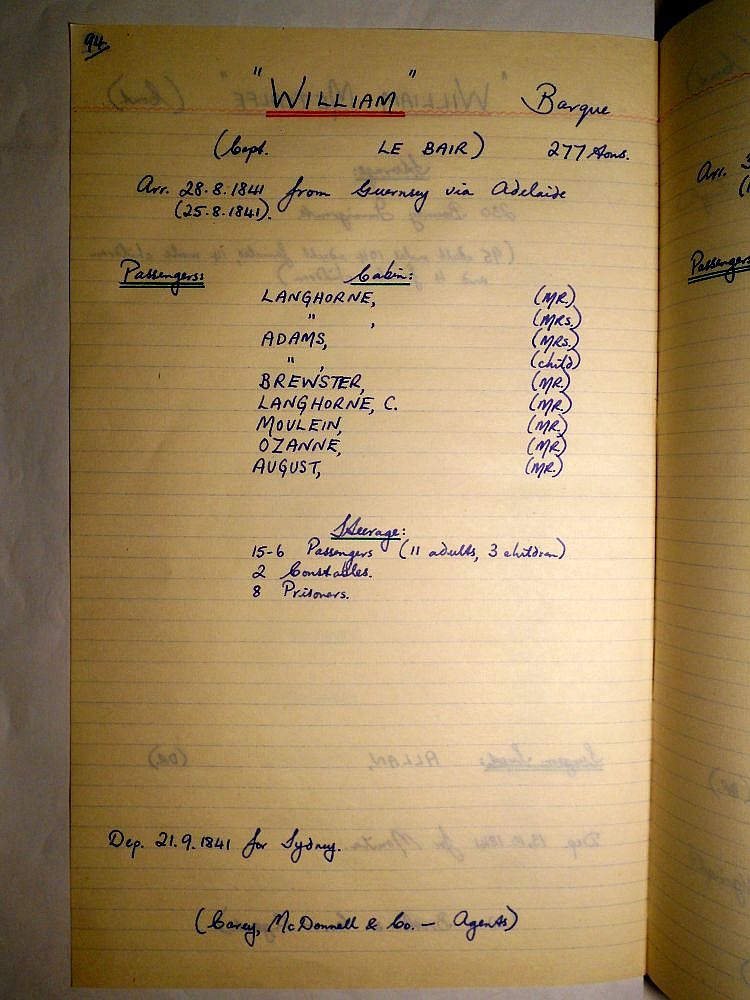 94
"WILLIAM" Barque
(Capt. LE BAIR) 277 tons.
Arr. 28.8.1841 from Guernsey via Adelaide
(25.8.1841).
Passengers: Cabin:
LANGHORNE, (MR.)
" , (MRS.)
ADAMS, (MRS.)
" , (child)
BREWSTER, (MR.)
LANGHORNE, C. (MR.)
MOULEIN, (MR.)
OZANNE, (MR.)
AUGUST, (MR.)
Steerage:
15-6 Passengers (11 adults, 3 children)
2 Constables.
8 Prisoners.
Dep. 21.9.1841 for Sydney.
(Carey, McDonnell & Co. — Agents)
Arr. 3
Passengers